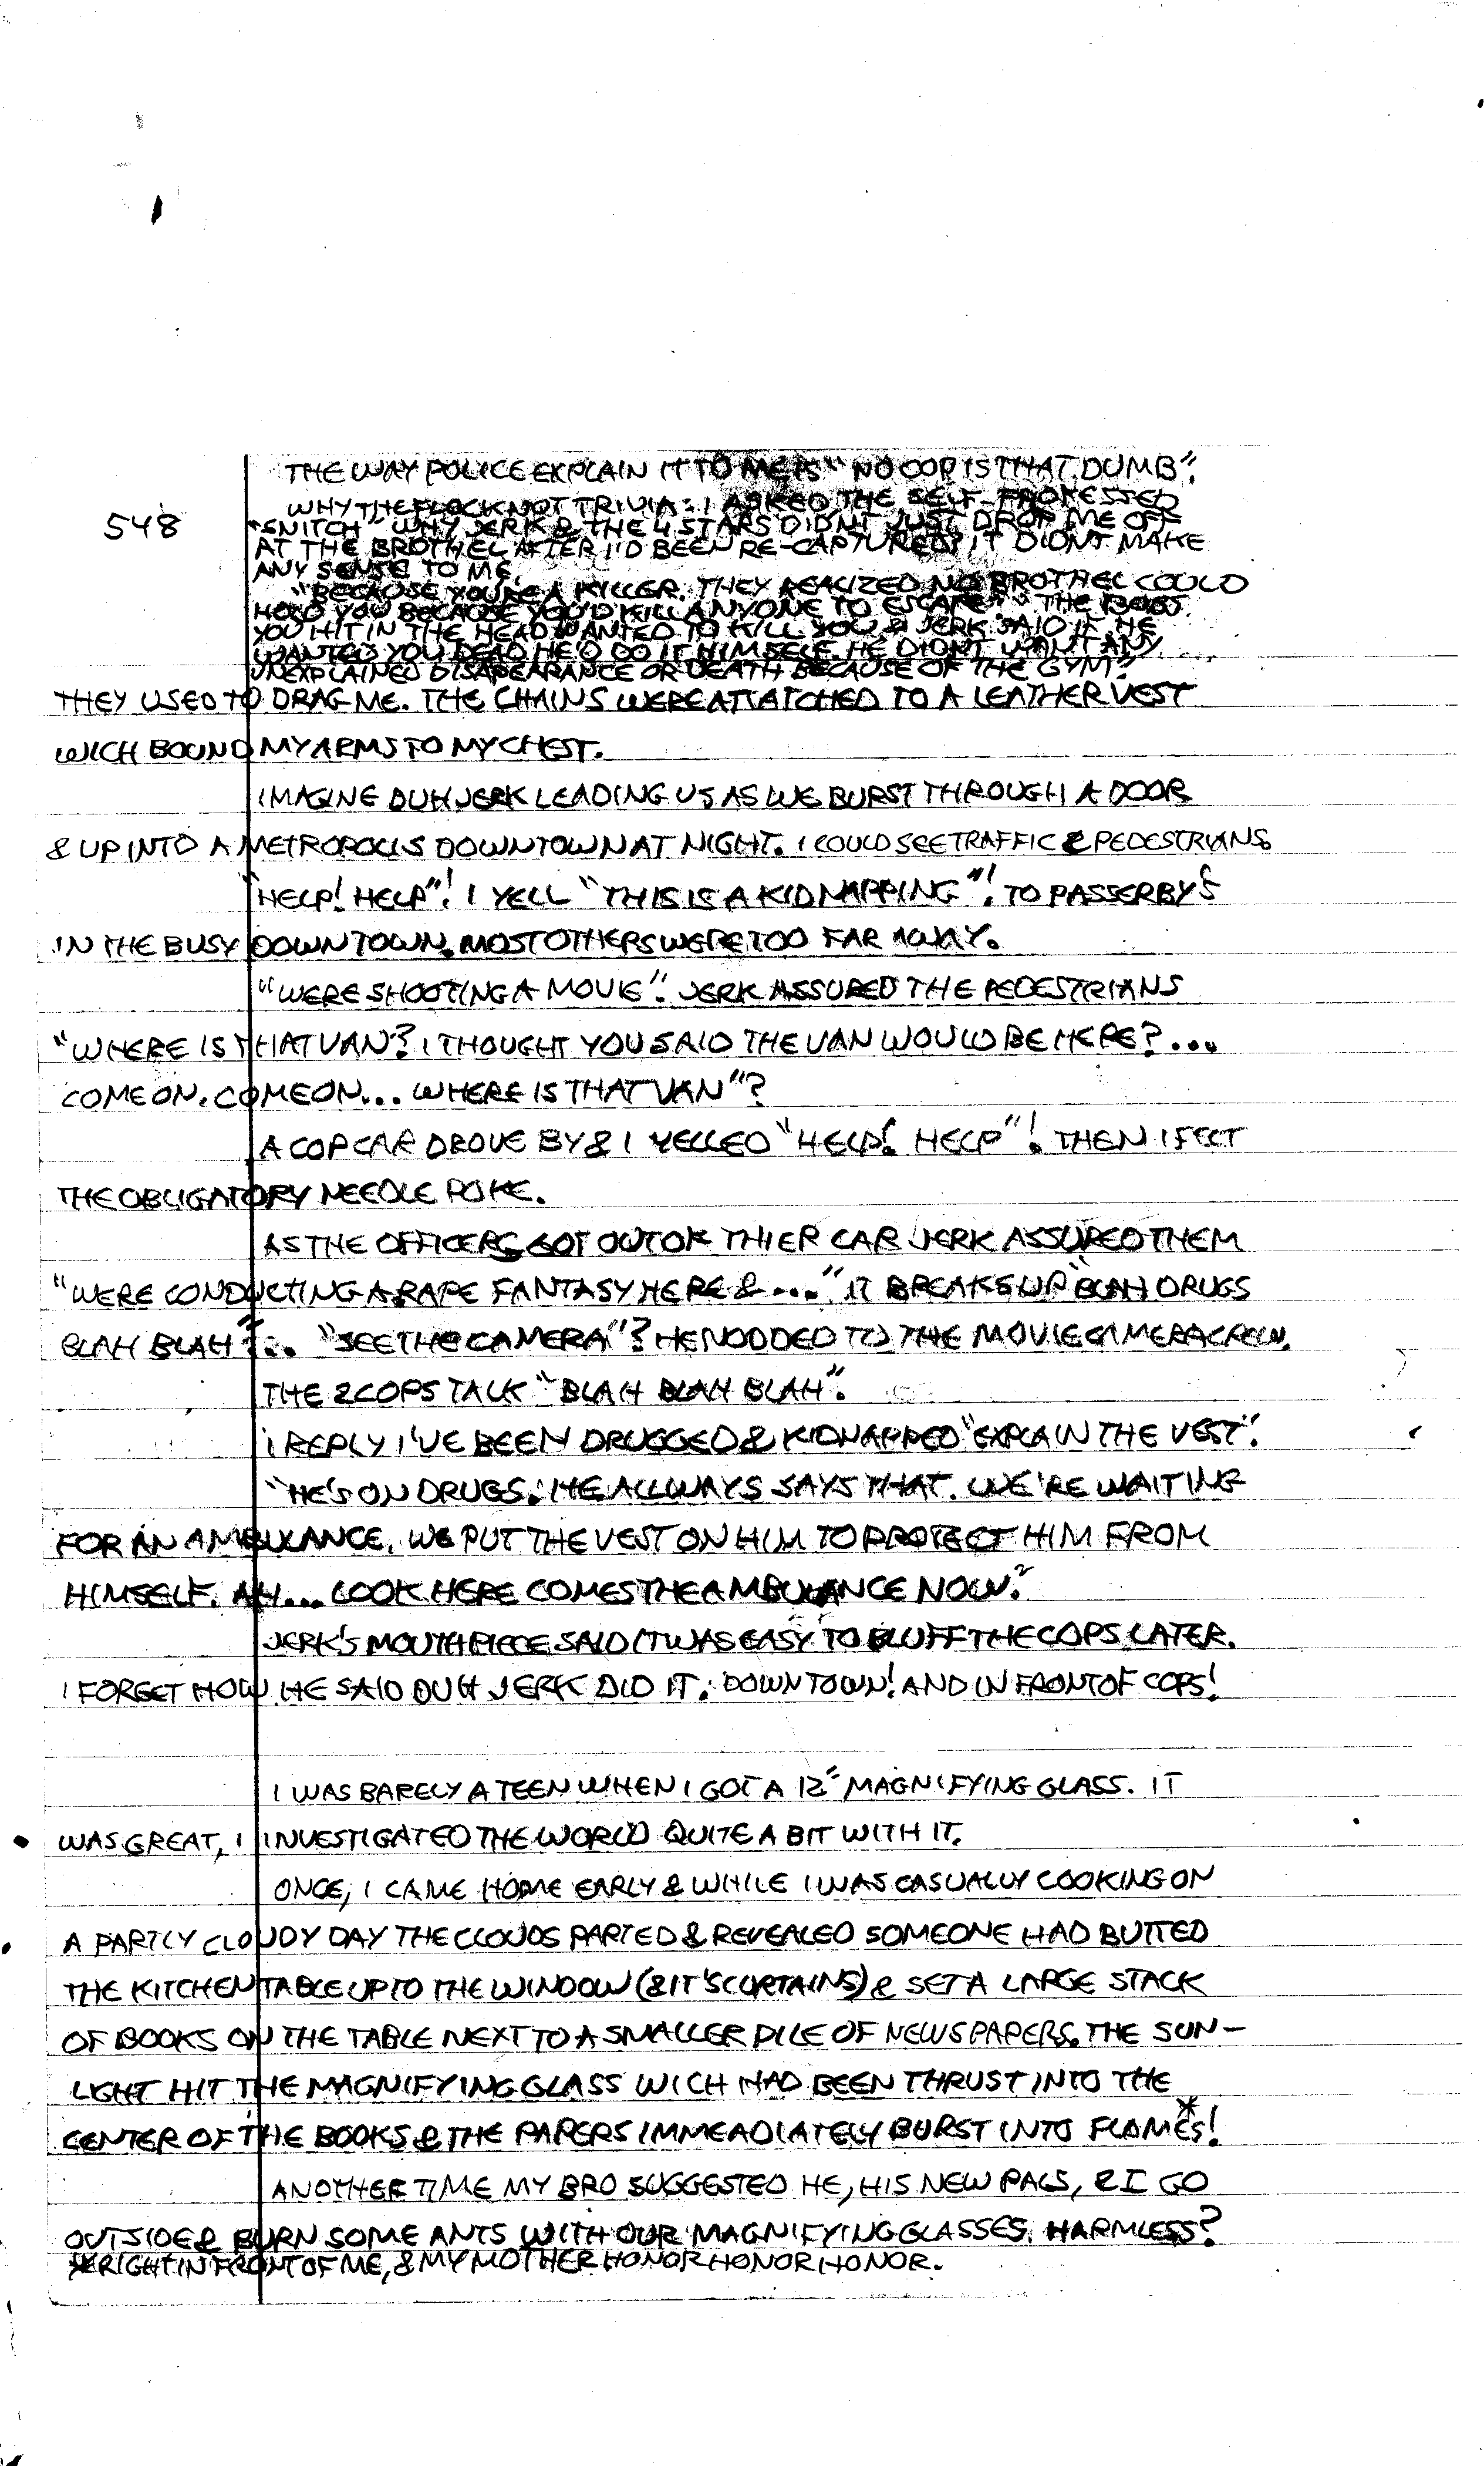 THE WAY POLICE EXPLAIN IT TO ME IS "NO COP IS THAT DUMB".
548
WHY THE FLOCK NOT TRIVIA: I ASKED THE SELF-PROFESSED
"SNITCH" WHY JERK & THE 4 STARS DIDNT JUST DROP ME OFF
AT THE BROTHEL AFTER I'D BEEN RE-CAPTURED? IT DIDNT MAKE
ANY SENSE TO ME.
"BECAUSE YOU'RE A KILLER. THEY REALIZED NO BROTHEL COULD
HOLD YOU BECAUSE YOU'D KILL ANYONE TO ESCAPE". "THE
YOU HIT IN THE HEAD WANTED TO KILL YOU & JERK SAID IF HE
WANTED YOU DEAD HE'D DO IT HIMSELF. HE DIDNT WANT ANY
UNEXPLAINED DISAPEARANCE OR DEATH BECAUSE OF THE GYM".
THEY USED TO DRAG ME. THE CHAINS WERE ATTATCHED TO A LEATHER VEST
WICH BOUND MY ARMS TO MY CHEST.
IMAGINE DUH JERK LEADING US AS WE BURST THROUGH A DOOR
& UP INTO A METROPOLIS DOWNTOWN AT NIGHT. I COULD SEE TRAFFIC & PEDESTRIANS.
"HELP! HELP"! I YELL "THIS IS A KIDNAPPING"! TO PASSERBYS
IN THE BUSY DOWNTOWN. MOST OTHERS WERE TOO FAR AWAY.
"WERE SHOOTING A MOVIE". JERK ASSURED THE PEDESTRIANS
"WHERE IS THAT VAN? I THOUGHT YOU SAID THE VAN WOULD BE HERE?...
COME ON, COME ON... WHERE IS THAT VAN"?
A COP CAR DROVE BY & I YELLED "HELP! HELP"! THEN I FELT
THE OBLIGATORY NEEDLE POKE.
AS THE OFFICERS GOT OUT OF THIER CAR JERK ASSURED THEM
"WERE CONDUCTING A RAPE FANTASY HERE &..." IT BREAKS UP "BLAH DRUGS
BLAH BLAH"... "SEE THE CAMERA"? HE NODDED TO THE MOVIE CAMERA CREW.
THE 2 COPS TALK "BLAH BLAH BLAH".
I REPLY I'VE BEEN DRUGGED & KIDNAPPED "EXPLAIN THE VEST".
"HE'S ON DRUGS. HE ALLWAYS SAYS THAT. WE'RE WAITING
FOR AN AMBULANCE. WE PUT THE VEST ON HIM TO PROTECT HIM FROM
HIMSELF. AH... LOOK HERE COMES THE AMBULANCE NOW."
JERK'S MOUTHPIECE SAID IT WAS EASY TO BLUFF THE COPS LATER.
I FORGET HOW HE SAID DUH JERK DID IT. DOWNTOWN! AND IN FRONT OF COPS!
I WAS BARELY A TEEN WHEN I GOT A 12" MAGNIFYING GLASS. IT
WAS GREAT, I INVESTIGATED THE WORLD QUITE A BIT WITH IT.
ONCE, I CAME HOME EARLY & WHILE I WAS CASUALLY COOKING ON
A PARTLY CLOUDY DAY THE CLOUDS PARTED & REVEALED SOMEONE HAD BUTTED
THE KITCHEN TABLE UP TO THE WINDOW (& IT'S CURTAINS) & SET A LARGE STACK
OF BOOKS ON THE TABLE NEXT TO A SMALLER PILE OF NEWSPAPERS. THE SUN-
LIGHT HIT THE MAGNIFYING GLASS WICH HAD BEEN THRUST INTO THE
CENTER OF THE BOOKS & THE PAPERS IMMEADIATELY BURST INTO FLAMES!*
ANOTHER TIME MY BRO SUGGESTED HE, HIS NEW PALS, & I GO
OUTSIDE & BURN SOME ANTS WITH OUR MAGNIFYING GLASSES. HARMLESS?
*RIGHT IN FRONT OF ME, & MY MOTHER HONOR HONOR HONOR.